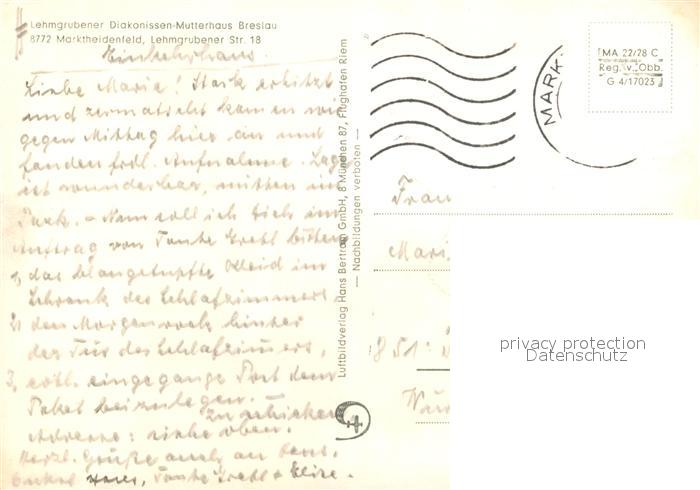 Lehmgrubener Diakonissen-Mutterhaus Breslau
8772 Marktheidenfeld, Lehmgrubener Str. 18
Einkehrhaus.
Liebe Marie! Stark erhitzt
und zermatscht kamen wir
gegen Mittag hier an und
fanden frdl. Aufnahme. Lage
ist wunderbar, mitten im
Park. – Nun soll ich Dich im
Auftrag von Tante Gretl bitten
1, das blaugetupfte Kleid im
Schrank des Schlafzimmers
2, den Morgenrock hinter
der Tür des Schlafzimmers,
3, evtl. eingegange Post dem
Paket beizulegen.
zu schicken
Adresse: siehe oben.
Herzl. Grüße auch an
Onkel Hans, Tante Gretl + Elise.
Luftbildverlag Hans Bertram GmbH, 8 München 87, Flughafen Riem
— Nachbildungen verboten —
MARK
MA 22/28 C
Reg. v. Obb.
G 4/17023
Frau
Mari
851
Nür
privacy protection
Datenschutz